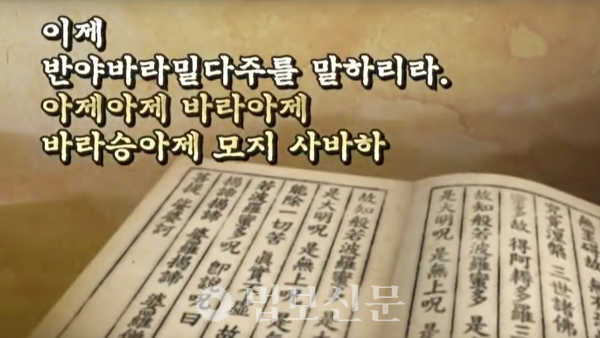 이제
반야바라밀다주를 말하리라.
아제아제 바라아제
바라승아제 모지 사바하
究竟涅槃 三世諸佛
多故 得阿耨多羅三
故知般若波羅蜜多
是大明呪 是無上呪 是
故知般若波羅蜜多
是大明呪 是無上呪
能除一切苦 眞實
若波羅蜜多呪 卽說呪曰
揭諦 揭諦 婆羅揭諦 婆羅
菩提 娑婆訶
법보신문